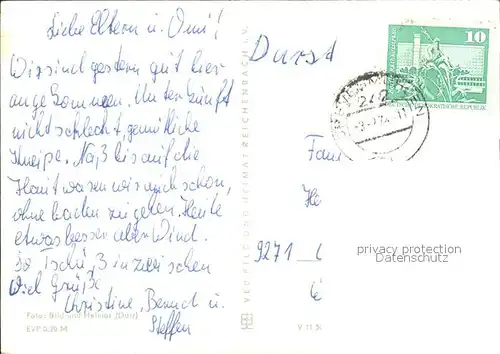 Liebe Eltern u. Omi!
Wir sind gestern gut hier
angekommen. Unterkunft
nicht schlecht, gemütliche
Kneipe. Na, bis auf die
Haut waren wir auch schon,
ohne baden zu gehen. Heute
etwas besser aber Wind.
So Tschüß inzwischen
Viel Grüße
Christine, Bernd u.
Steffen
Foto: Bild und Heimat (Darr)
EVP 0,20 M
VEB BILD UND HEIMAT REICHENBACH i. V.
V 11
Durst
10
DEMOKRATISCHE REPUBLIK
242
Fam
9271
privacy protection
Datenschutz